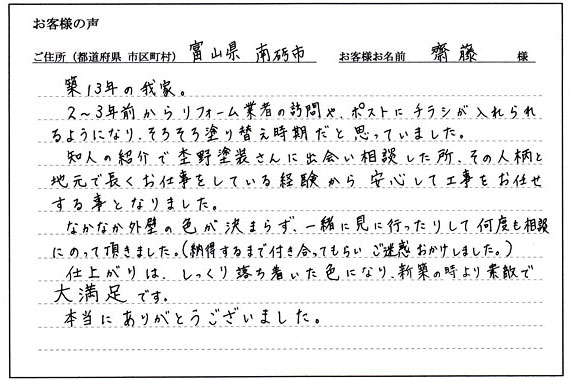 お客様の声
ご住所（都道府県 市区町村） 富山県 南砺市 お客様お名前 齋藤 様
築13年の我家。
2〜3年前からリフォーム業者の訪問や、ポストにチラシが入れられ
るようになり、そろそろ塗り替え時期だと思っていました。
知人の紹介で杢野塗装さんに出会い相談した所、その人柄と
地元で長くお仕事をしている経験から 安心して工事をお任せ
する事となりました。
なかなか外壁の色が決まらず、一緒に見に行ったりして何度も相談
にのって頂きました。（納得するまで付き合ってもらい ご迷惑おかけしました。）
仕上がりは、しっくり落ち着いた色になり、新築の時より素敵で
大満足です。
本当にありがとうございました。